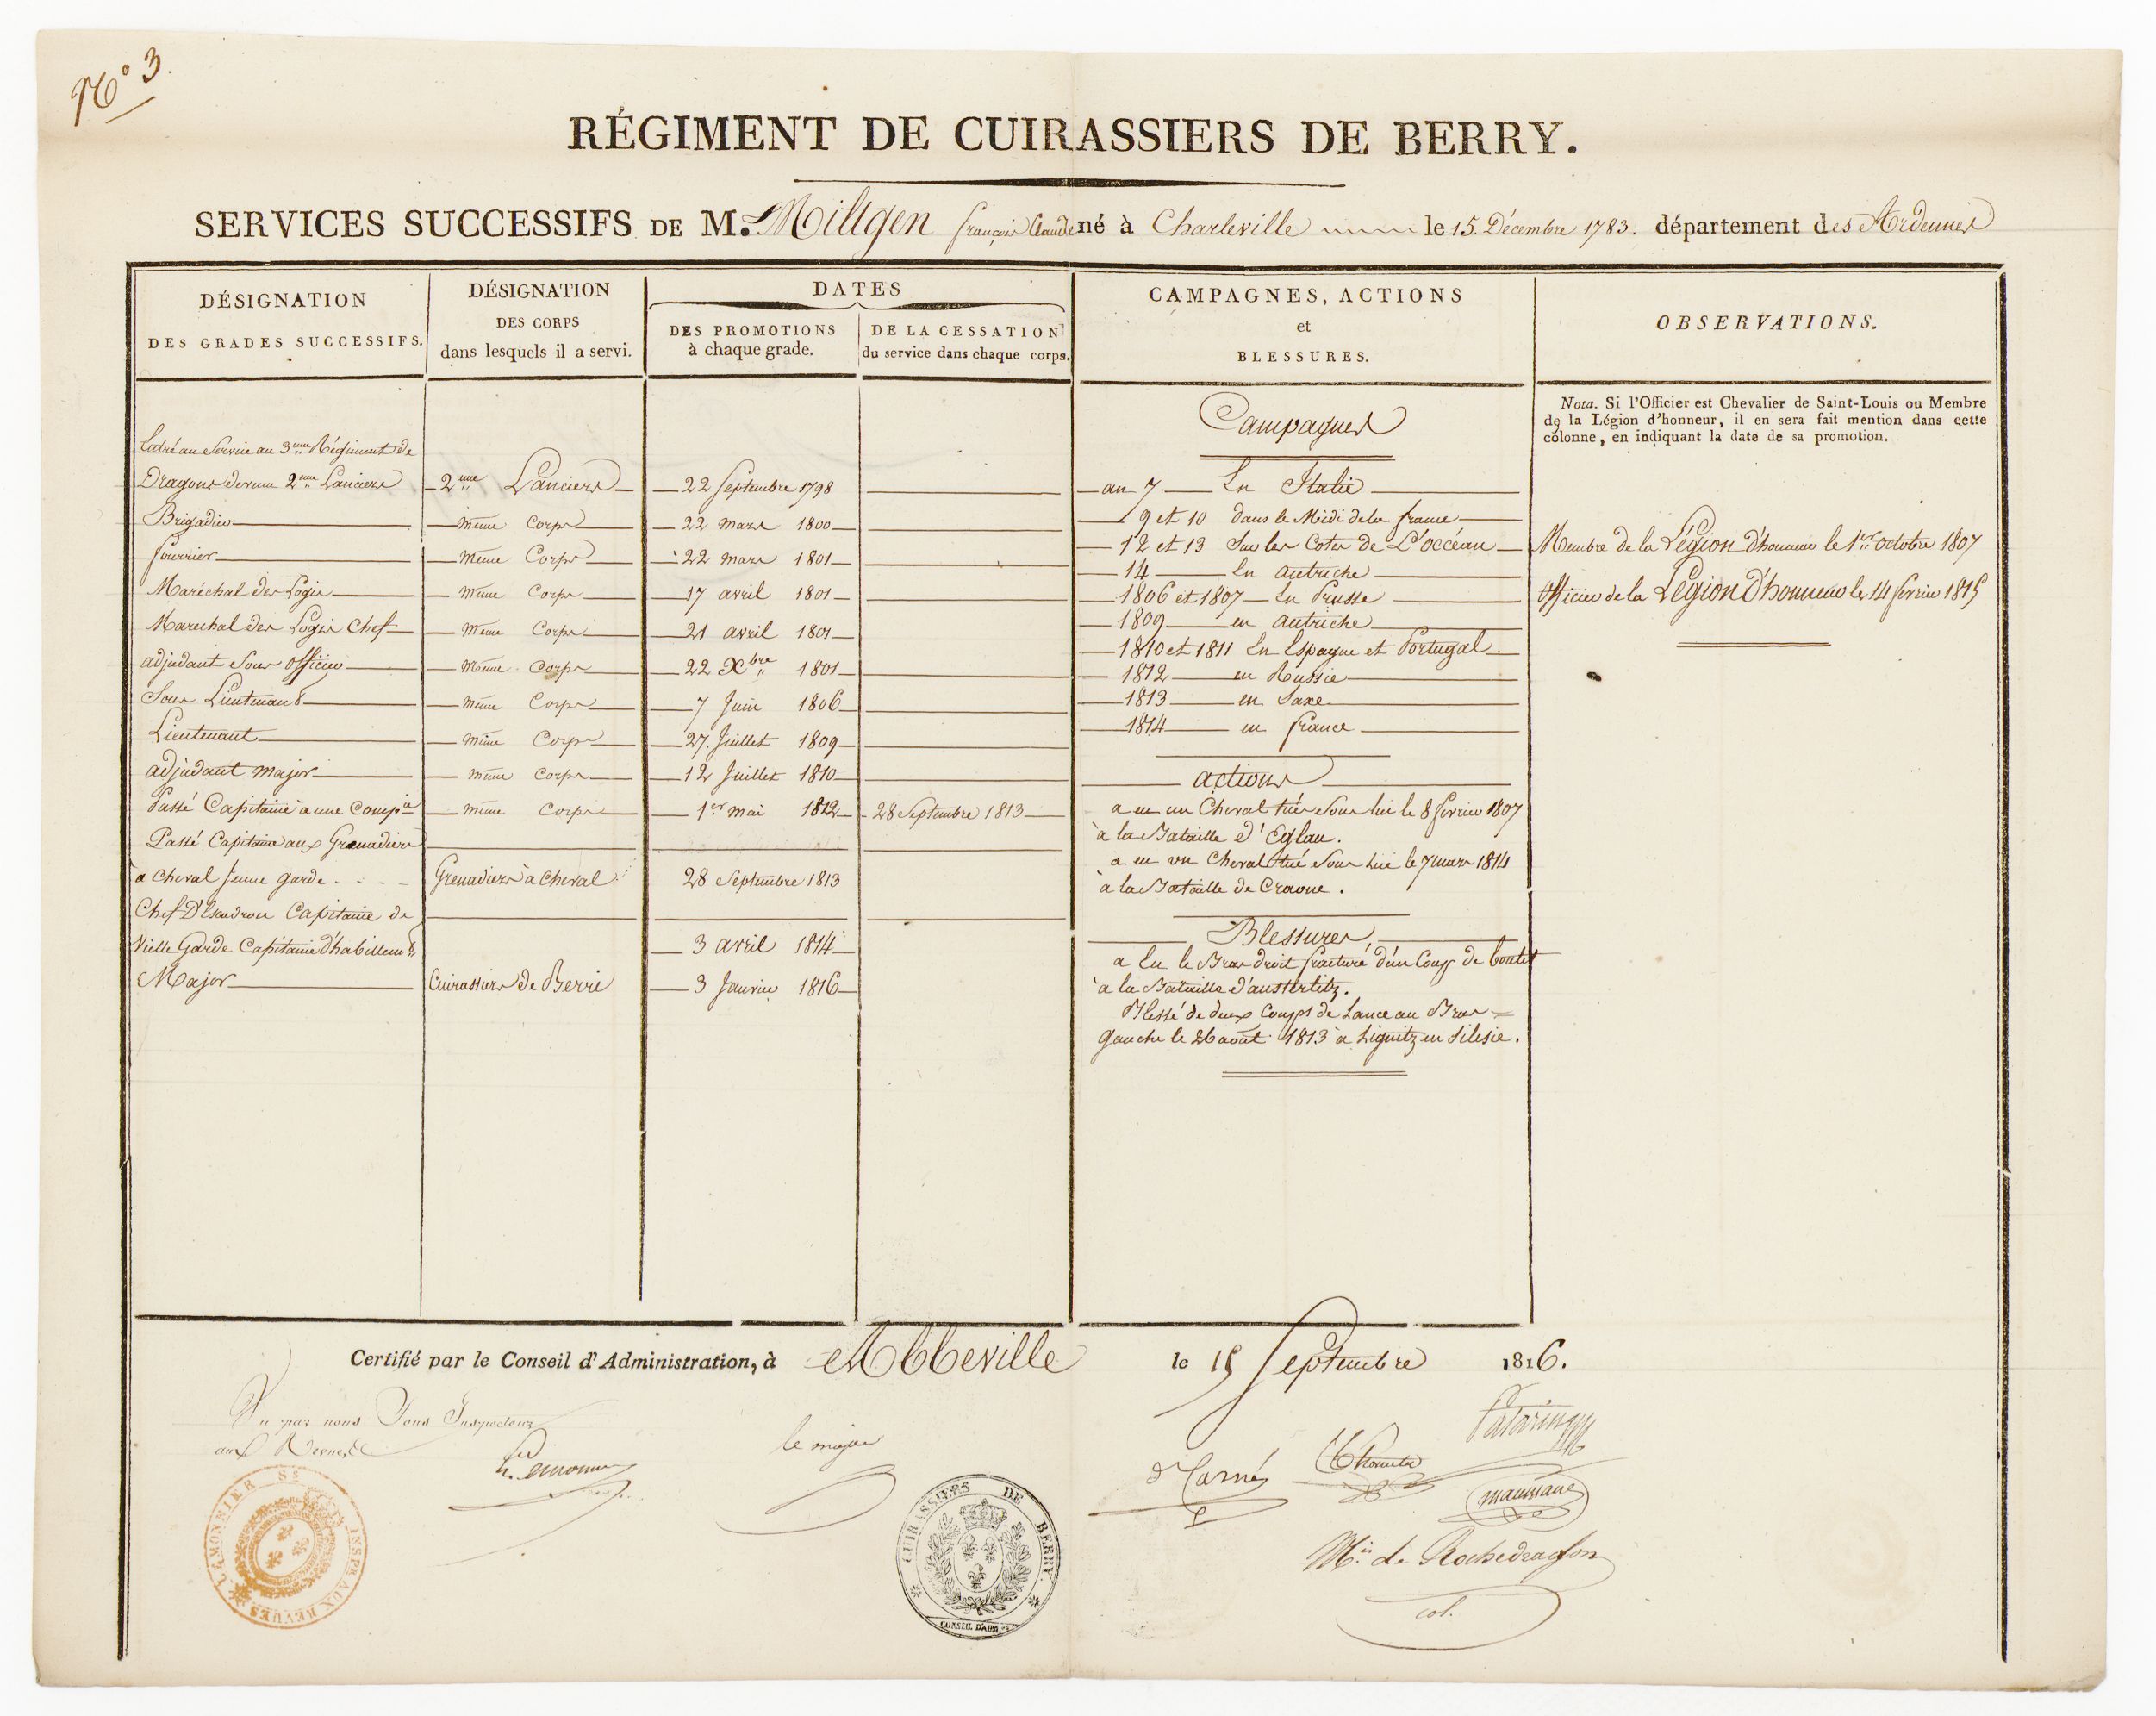 N° 3.
RÉGIMENT DE CUIRASSIERS DE BERRY.
SERVICES SUCCESSIFS DE M. Miltgen françois Claude né à Charleville le 15. Décembre 1783. département des Ardennes
DÉSIGNATION
DES GRADES SUCCESSIFS.
DÉSIGNATION
DES CORPS
dans lesquels il a servi.
DATES
DES PROMOTIONS
à chaque grade.
DE LA CESSATION
du service dans chaque corps.
CAMPAGNES, ACTIONS
et
BLESSURES.
OBSERVATIONS.
Nota. Si l'Officier est Chevalier de Saint-Louis ou Membre
de la Légion d'honneur, il en sera fait mention dans cette
colonne, en indiquant la date de sa promotion.
Entré au Service au 3eme Régiment de
Dragons devenu 2eme Lanciers 2eme Lanciers 22 Septembre 1798
Brigadier même Corps 22 mars 1800
fourrier même Corps 22 mars 1801
Maréchal des Logis même Corps 17 avril 1801
Marechal des Logis Chef même Corps 21 avril 1801
adjudant Sous officier même Corps 22 Xbre 1801
Sous Lieutenant même Corps 7 Juin 1806
Lieutenant même Corps 27. Juillet 1809
adjudant major même Corps 12 Juillet 1810
Passé Capitaine à une Compie même Corps 1er mai 1812 28 Septembre 1813
Passé Capitaine aux Grenadiers
à Cheval Jeune garde Grenadiers à Cheval 28 Septembre 1813
Chef D'Escadron Capitaine de
Vielle Garde Capitaine d'habillemt 3 avril 1814
Major Cuirassiers de Berri 3 Janvier 1816
Campagnes
an 7. En Italie
9 et 10 dans le Midi de la france
12 et 13 Sur les Cotes de L'occéan
14 En autriche
1806 et 1807 En Prusse
1809 en autriche
1810 et 1811 En Espagne et Portugal
1812 en Russie
1813 en Saxe
1814 en france
actions
a eu un Cheval tué Sous lui le 8 fevrier 1807
à la Bataille d'Eglau.
a eu un Cheval tué Sous lui le 7 mars 1814
à la Bataille de Craone.
Blessures
a Eu le Bras droit fracturé d'un Coup de boulet
à la Bataille d'austerlitz.
Blessé de deux Coups de Lance au Bras
gauche le 26 août 1813 à Lignitz en Silesie.
Membre de la Légion d'honneur le 1er octobre 1807
Officier de la Légion d'honneur le 14 fevrier 1815
Certifié par le Conseil d'Administration, à Abbeville le 15 Septembre 1816.
Vu par nous Sous Inspecteur
aux Revues
le major
d Carné
maussane
Mis de Rochedragon
col.
LEMONNIER Ss INSPr AUX REVUES
CUIRASSIERS DE BERRY.
CONSEIL D'ADM.